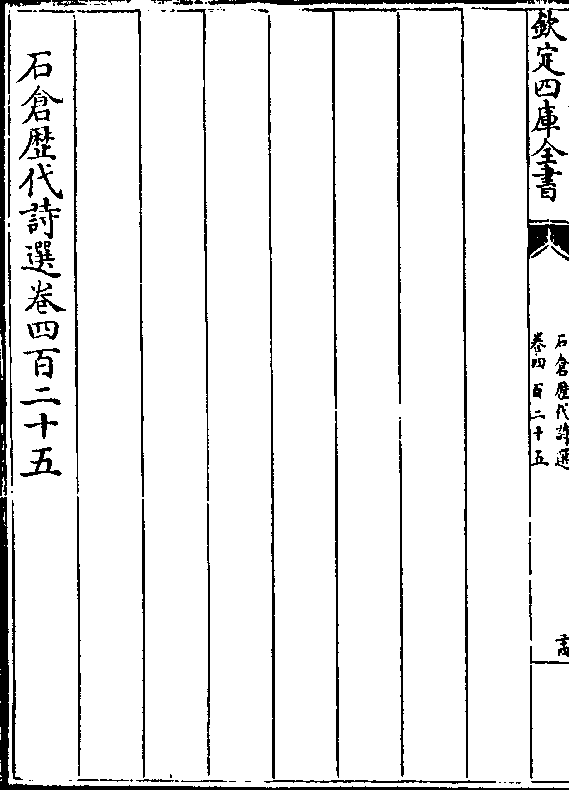 欽定四庫全書
石倉歴代詩選
卷四百二十五
石倉歴代詩選卷四百二十五